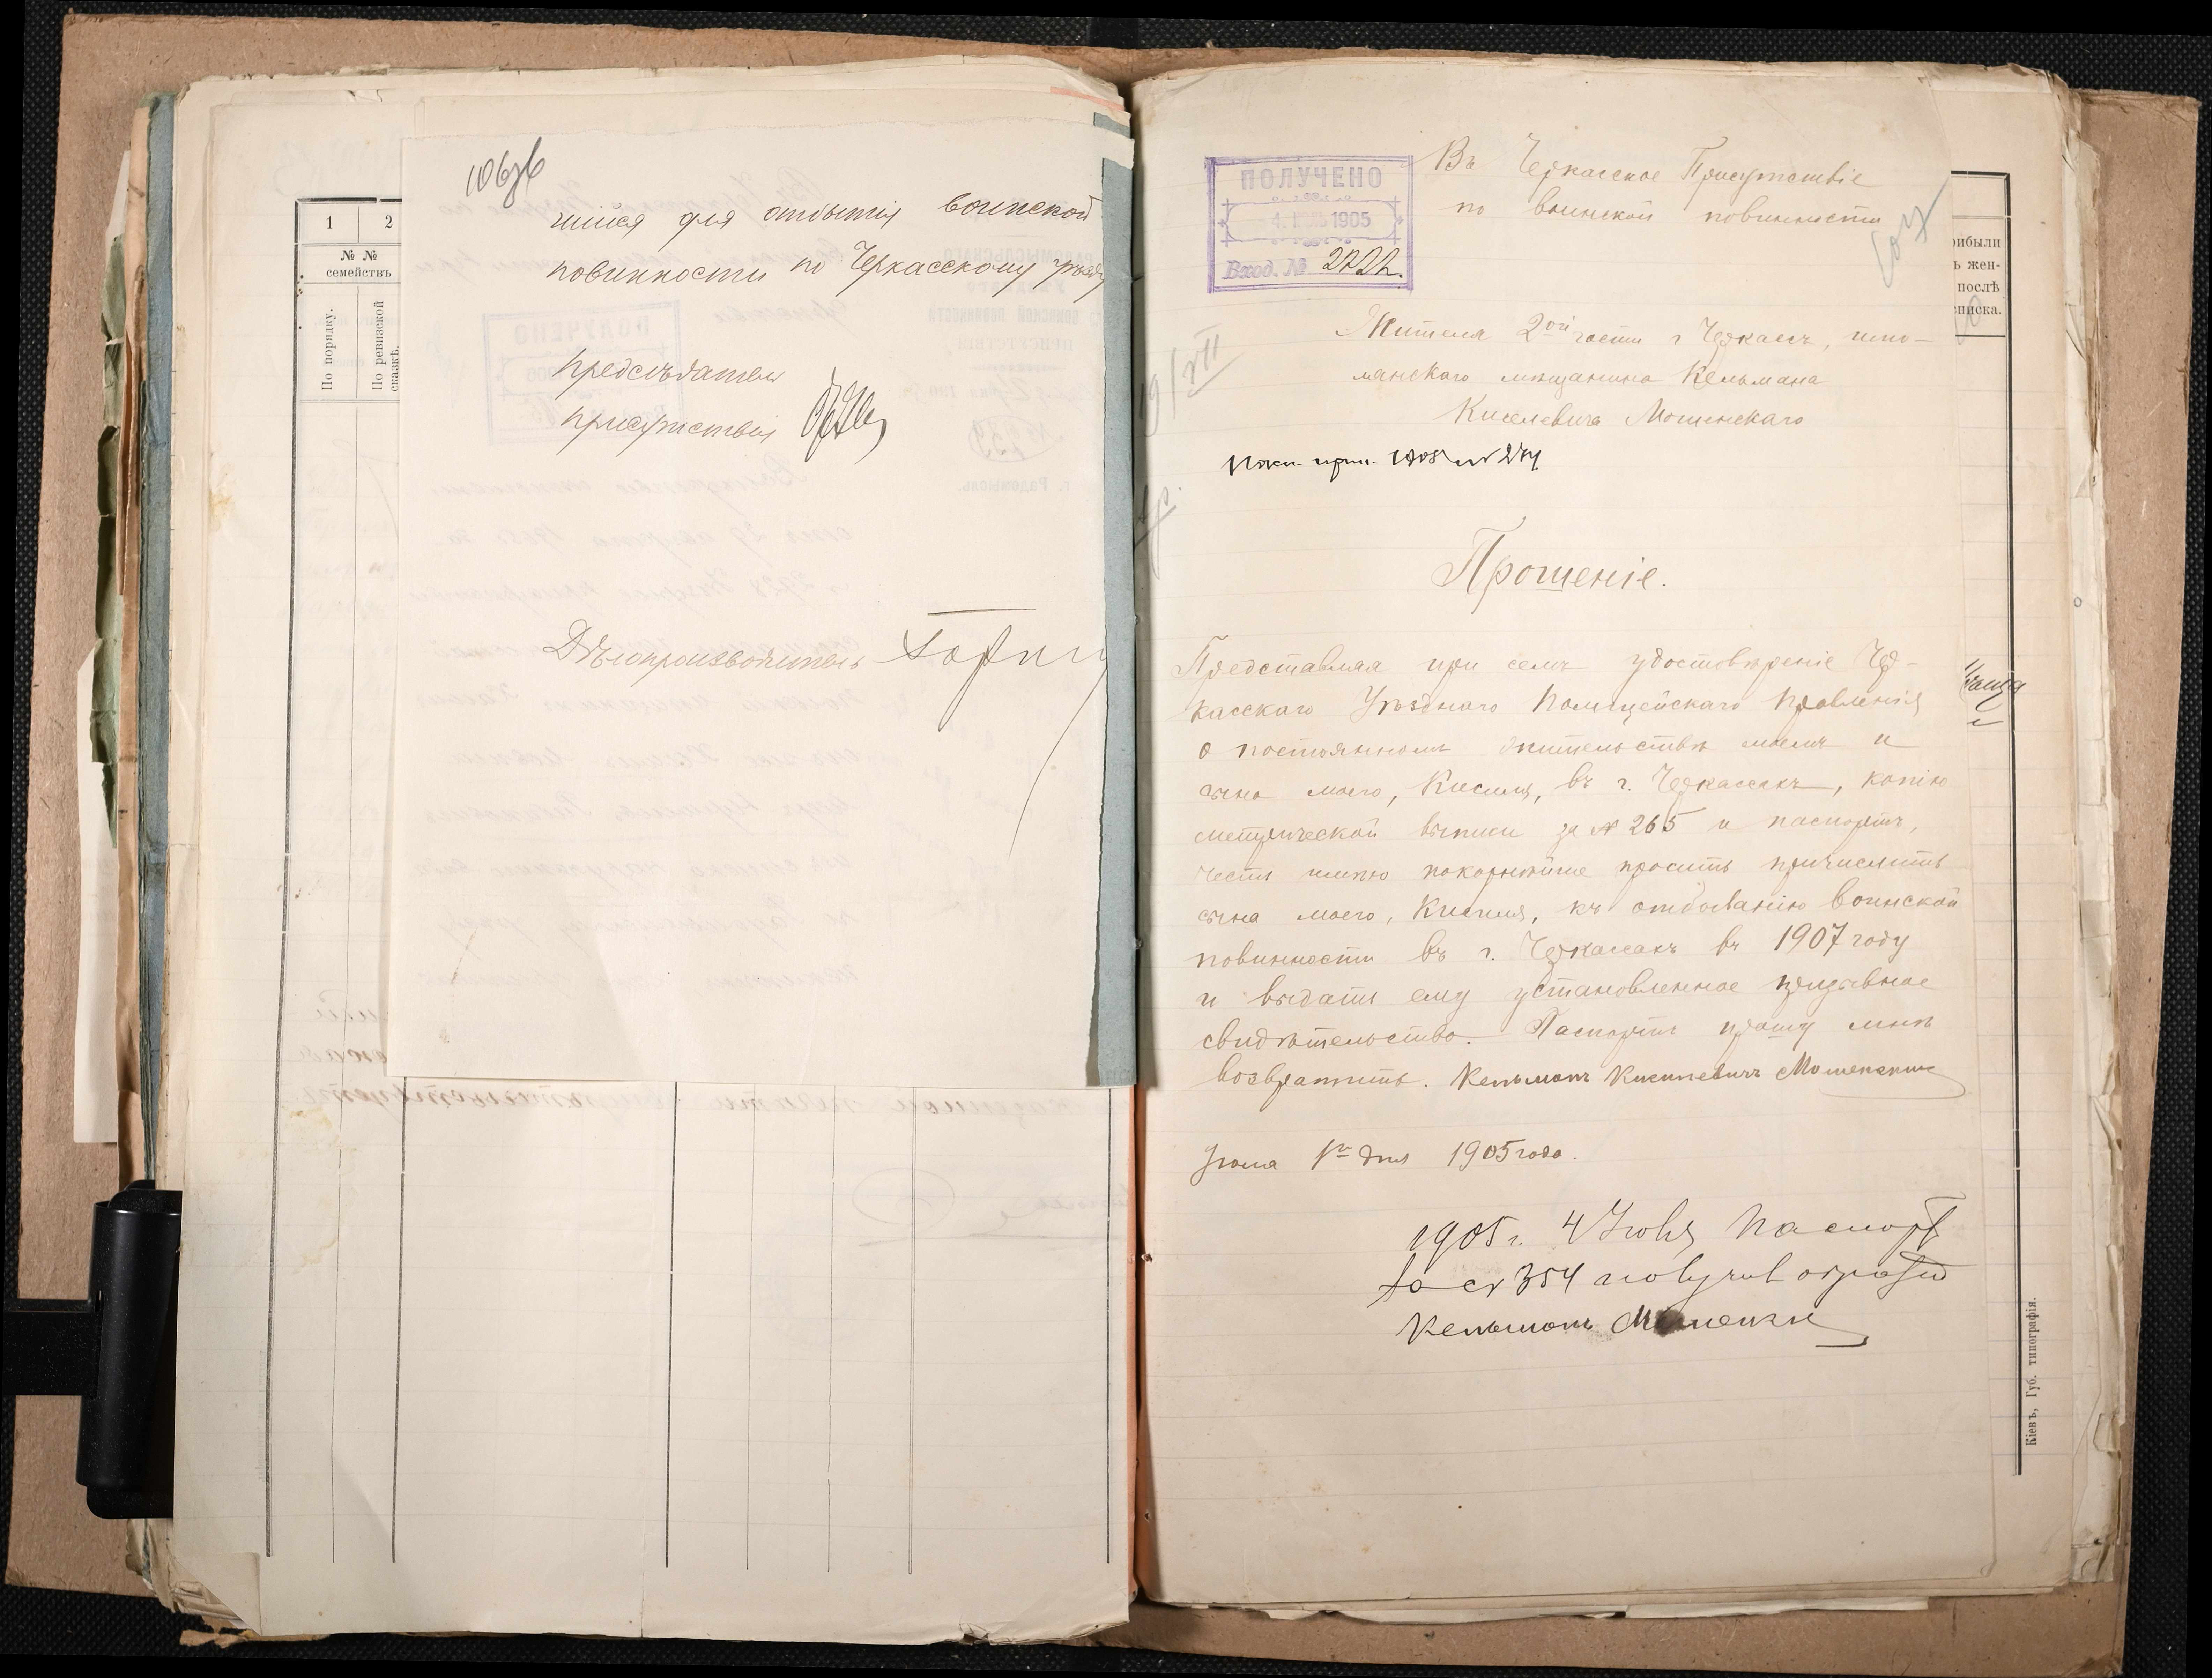 106 об
шійся для отбытія воинской
повинности по Черкасскому уѣзду
Предсѣдатель
присутствія
Дѣлопроизводитель
1
2
№ №
семействъ
По порядку.
По ревизской
сказкѣ.
ПОЛУЧЕНО
4. 1905
Вход. № 2722.
Въ Черкасское Присутствіе
по воинской повинности
Жителя 2ой части г Черкассъ, шпо-
лянскаго мѣщанина Кельмана
Киселевича Мошенскаго
Прошеніе.
Представляя при семъ удостовѣреніе Чер-
касскаго Уѣзднаго Полицейскаго Правленія
о постоянномъ жительствѣ моемъ и
сына моего, Кисиля, въ г. Черкассахъ, копію
метрической выписи за № 265 и паспортъ,
честь имѣю покорнѣйше просить причислить
сына моего, Кисиля, къ отбыванію воинской
повинности въ г. Черкассахъ въ 1907 году
и выдать ему установленное призывное
свидѣтельство. Паспортъ прошу мнѣ
возвратить. Кельманъ Кисилевичъ Мошенскій
Іюля 1го дня 1905 года.
1905 г. 4 Іюля Паспортъ
за № 354 получилъ обратно
Кельманъ Мошенскій
рибыли
ь жен-
послѣ
списка.
Кіевъ, Губ. типографія.